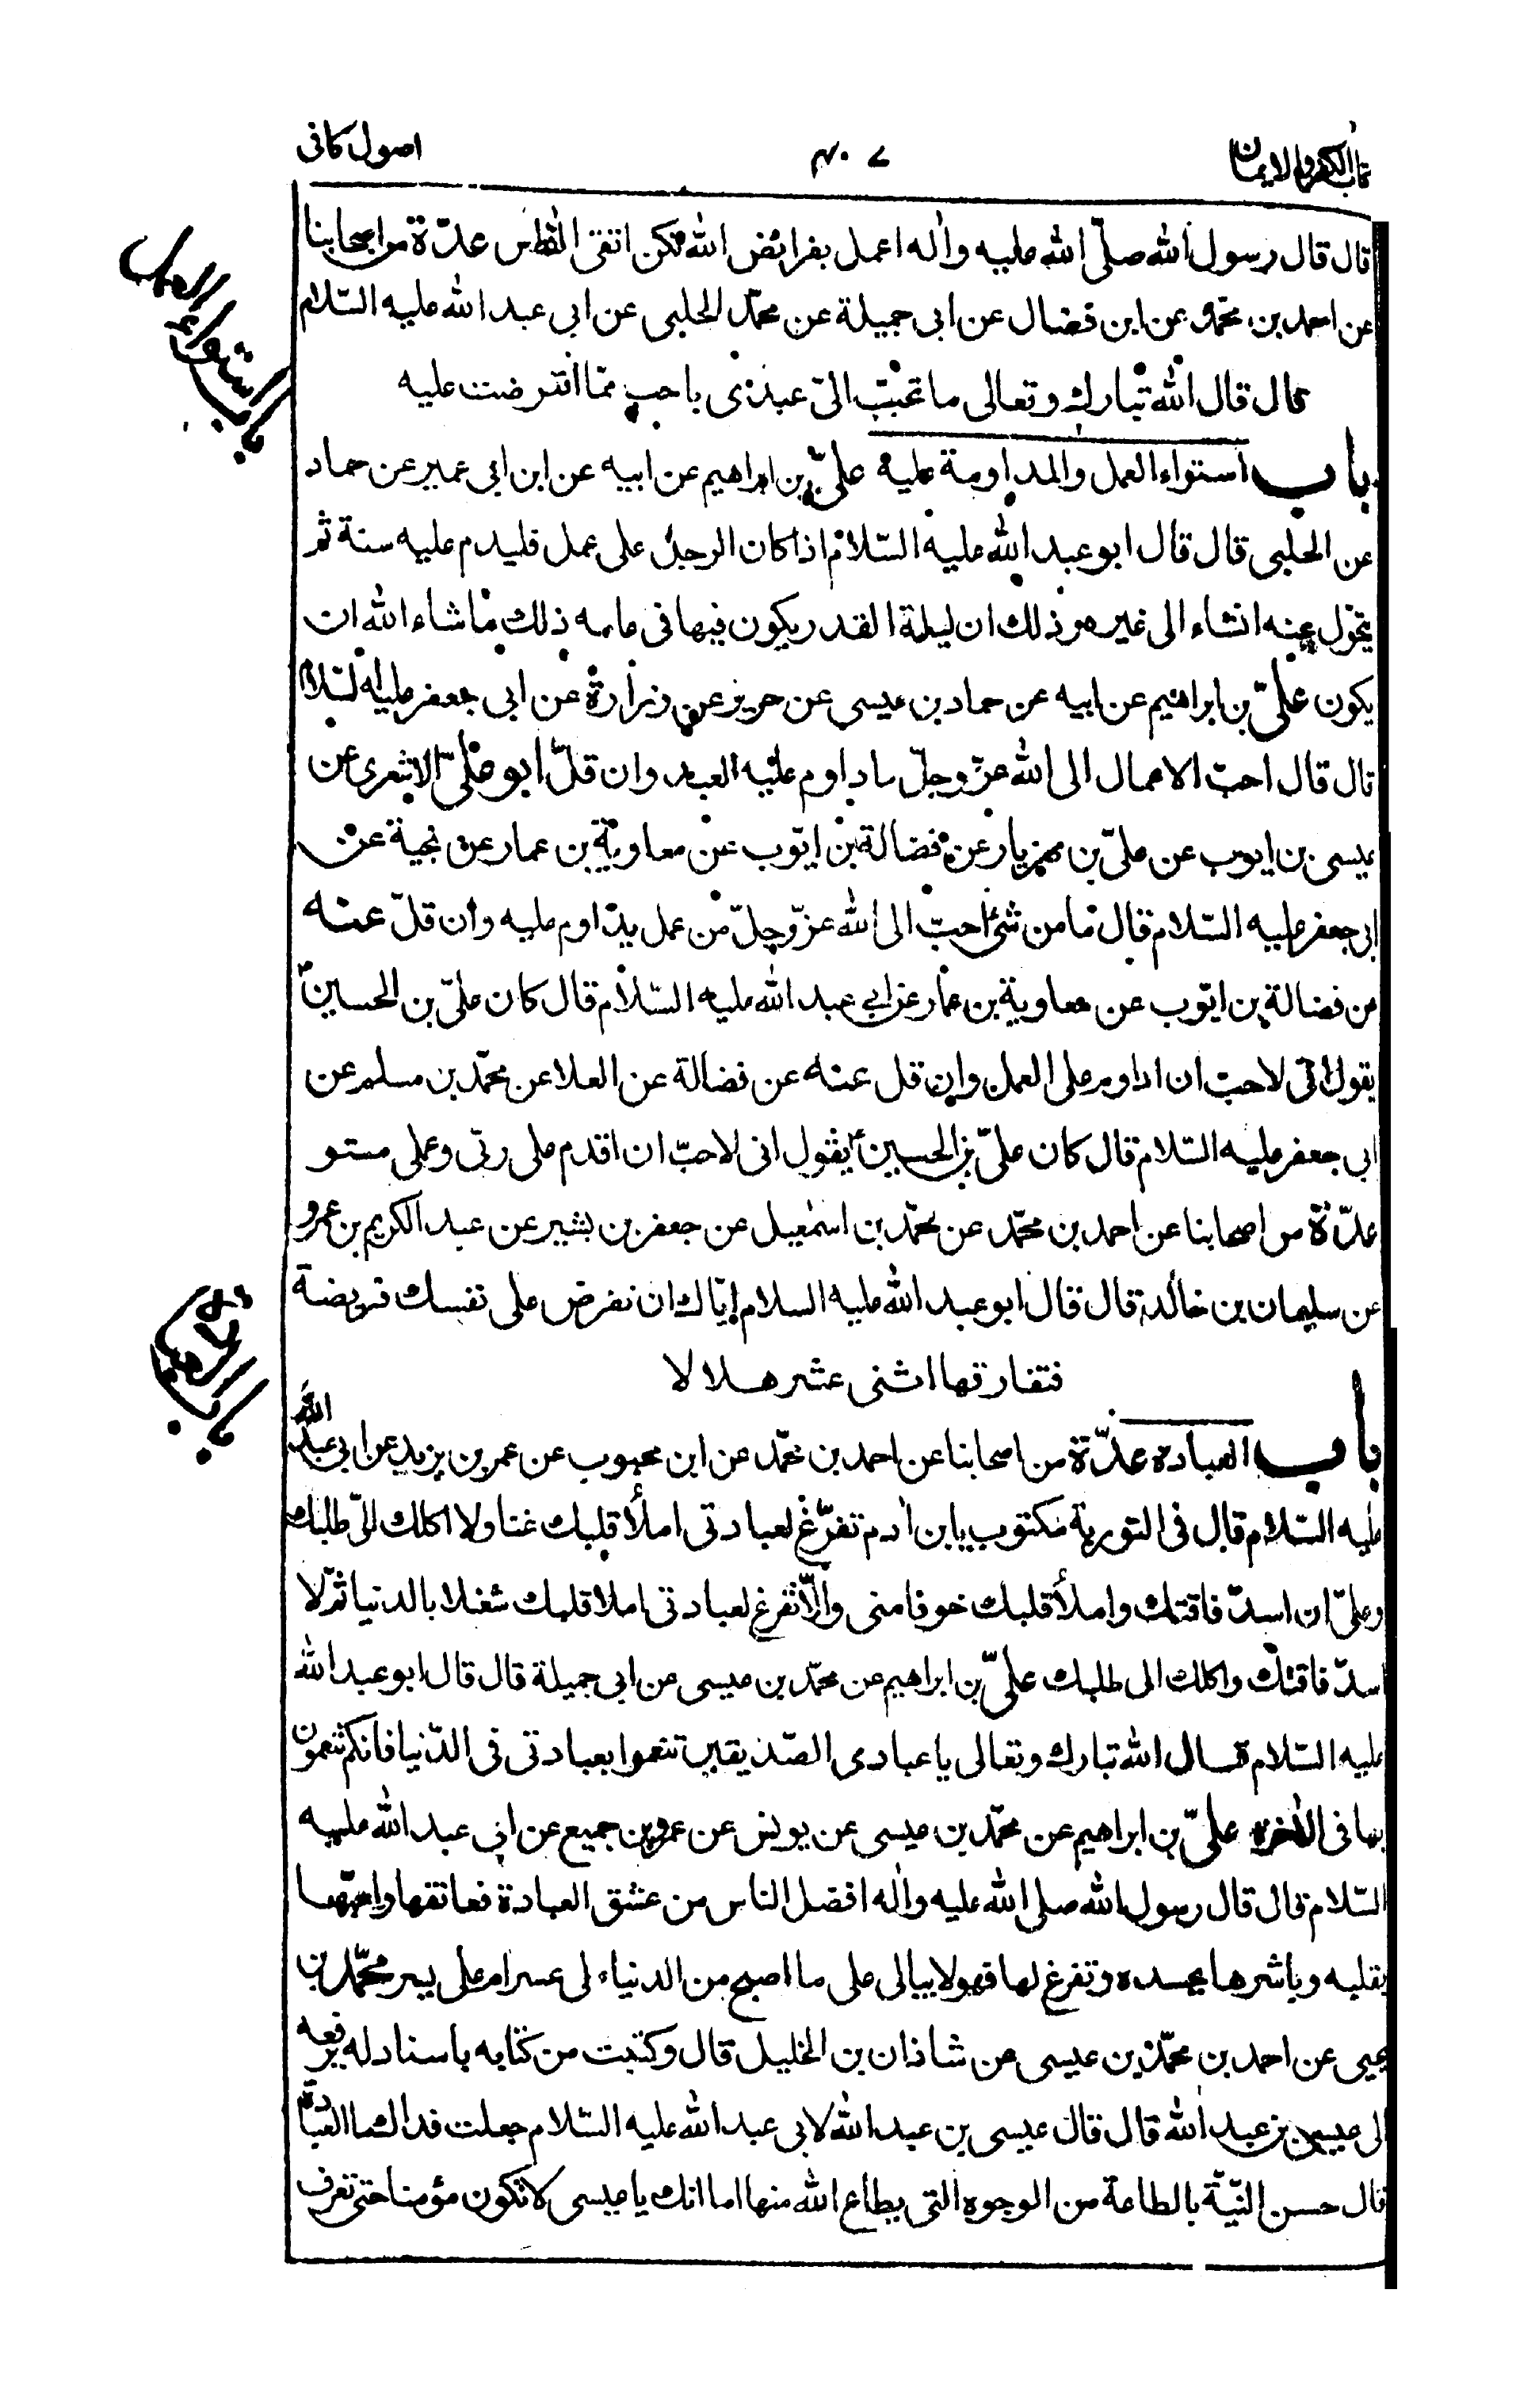 كتاب الكفر والايمان
۴۰۷
اصول كافى
قال قال رسول الله صلّى الله عليه واٰله اعمل بفرائض الله تكن اتقى الناس عدّة من اصحابنا
عن احمد بن محمّد عن ابن فضال عن ابى جميلة عن محمّد الحلبى عن ابى عبد الله عليه السّلام
قال قال الله تبارك وتعالى ما تحبّب الىّ عبدى باحب ممّا افترضت عليه
باب استواء العمل والمداومة عليه علىّ بن ابراهيم عن ابيه عن ابن ابى عمير عن حماد
عن الحلبى قال قال ابو عبد الله عليه السّلام اذا كان الرجل على عمل فليدم عليه سنة ثم
يتحوّل عنه انشاء الى غيره وذلك ان ليلة القدر يكون فيها فى عامه ذلك ما شاء الله ان
يكون علىّ بن ابراهيم عن ابيه عن حماد بن عيسى عن حريز عن زرارة عن ابى جعفر عليه السّلام
قال قال احبّ الاعمال الى الله عزّ وجلّ ما داوم عليه العبد وان قلّ ابو علىّ الاشعرى عن
عيسى بن ايوب عن علىّ بن مهزيار عن فضالة بن ايّوب عن معاوية بن عمار عن نجية عن
ابى جعفر عليه السّلام قال ما من شئ احبّ الى الله عزّ وجلّ من عمل يداوم عليه وان قلّ عنه
عن فضالة بن ايّوب عن معاوية بن عمار عن ابى عبد الله عليه السّلام قال كان علىّ بن الحسينؑ
يقول انّى لاحبّ ان اداوم على العمل وان قل عنه عن فضالة عن العلا عن محمّد بن مسلم عن
ابى جعفر عليه السّلام قال كان علىّ بن الحسينؑ يقول انى لاحبّ ان اقدم على ربّى وعملى مستو
عدّة من اصحابنا عن احمد بن محمّد عن محمّد بن اسمٰعيل عن جعفر بن بشير عن عبد الكريم بن عمرو
عن سليمان بن خالد قال قال ابو عبد الله عليه السلام ايّاك ان تفرض على نفسك فريضة
فتفارقها اثنى عشر هلالا
باب العباده عدّة من اصحابنا عن احمد بن محمّد عن ابن محبوب عن عمر بن يزيد عن ابى عبد الله
عليه السّلام قال فى التورية مكتوب يابن اٰدم تفرّغ لعبادتى املأ قلبك غنا ولا اكلك الىّ طلبك
وعلىّ ان اسدّ فاقتك واملأ قلبك خوفا منى والّا تفرغ لعبادتى املا قلبك شغلا بالدنيا ثمّ لا
اسدّ فاقتك واكلك الى طلبك علىّ بن ابراهيم عن محمّد بن عيسى عن ابى جميلة قال قال ابو عبد الله
عليه السّلام قال الله تبارك وتعالى يا عبادى الصّديقين تنعموا بعبادتى فى الدّنيا فانكم تنعمون
بها فى الاٰخره علىّ بن ابراهيم عن محمّد بن عيسى عن يونس عن عمرو بن جميع عن ابى عبد الله عليه
السّلام قال قال رسول الله صلى الله عليه واٰله افضل الناس من عشق العبادة فعانقها واحبّها
بقلبه وباشرها بجسده وتفرغ لها فهو لا يبالى على ما اصبح من الدنيا على عسر ام على يسر محمّد بن
يحيى عن احمد بن محمّد بن عيسى عن شاذان بن الخليل قال وكتبت من كتابه باسناد له يرفعه
الى عيسى بن عبد الله قال قال عيسى بن عبد الله لابى عبد الله عليه السّلام جعلت فداك ما العبادة
قال حسن النيّة بالطاعة من الوجوه التى يطاع الله منها اما انك يا عيسى لا تكون مؤمنا حتى تعرف
باب استواء العمل
باب العبادة